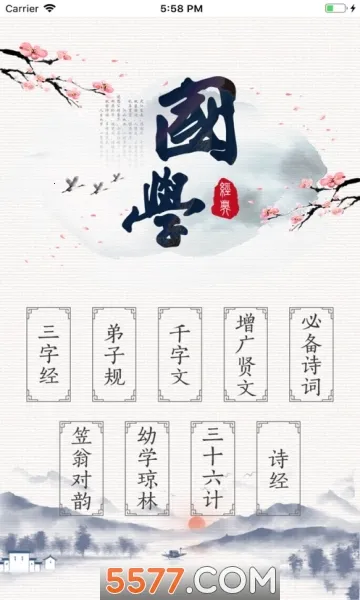 Carrier 5:58 PM
國學
經典
三字经
弟子规
千字文
增广贤文
必备诗词
笠翁对韵
幼学琼林
三十六计
诗经
5577.com